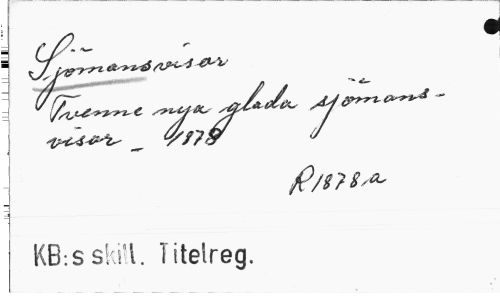 Sjömansvisor
Tvenne nya glada sjömans-
visor _ 1878
R 1878 a
KB:s skill. Titelreg.